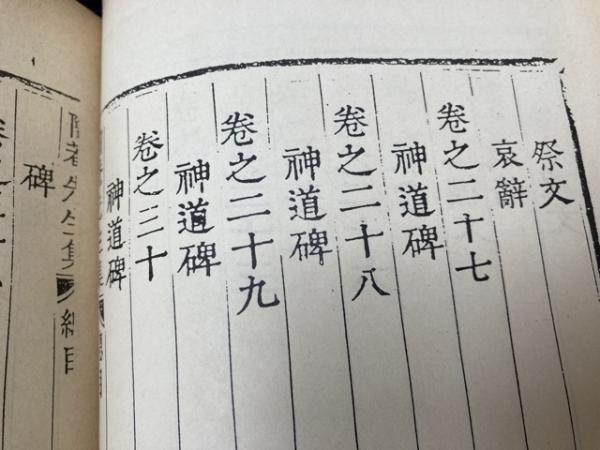 祭文
哀辭
卷之二十七
神道碑
卷之二十八
神道碑
卷之二十九
神道碑
卷之三十
神道碑
先生集
總目
碑